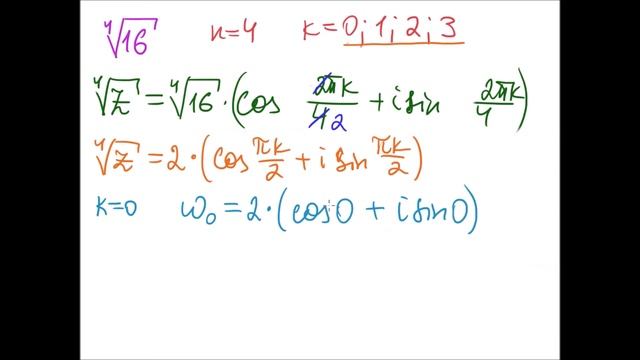 ⁴√16 n=4 k=0; 1; 2; 3
⁴√z = ⁴√16 · (cos 2πk/42 + i sin 2πk/4)
⁴√z = 2 · (cos πk/2 + i sin πk/2)
k=0 ω₀ = 2 · (cos 0 + i sin 0)